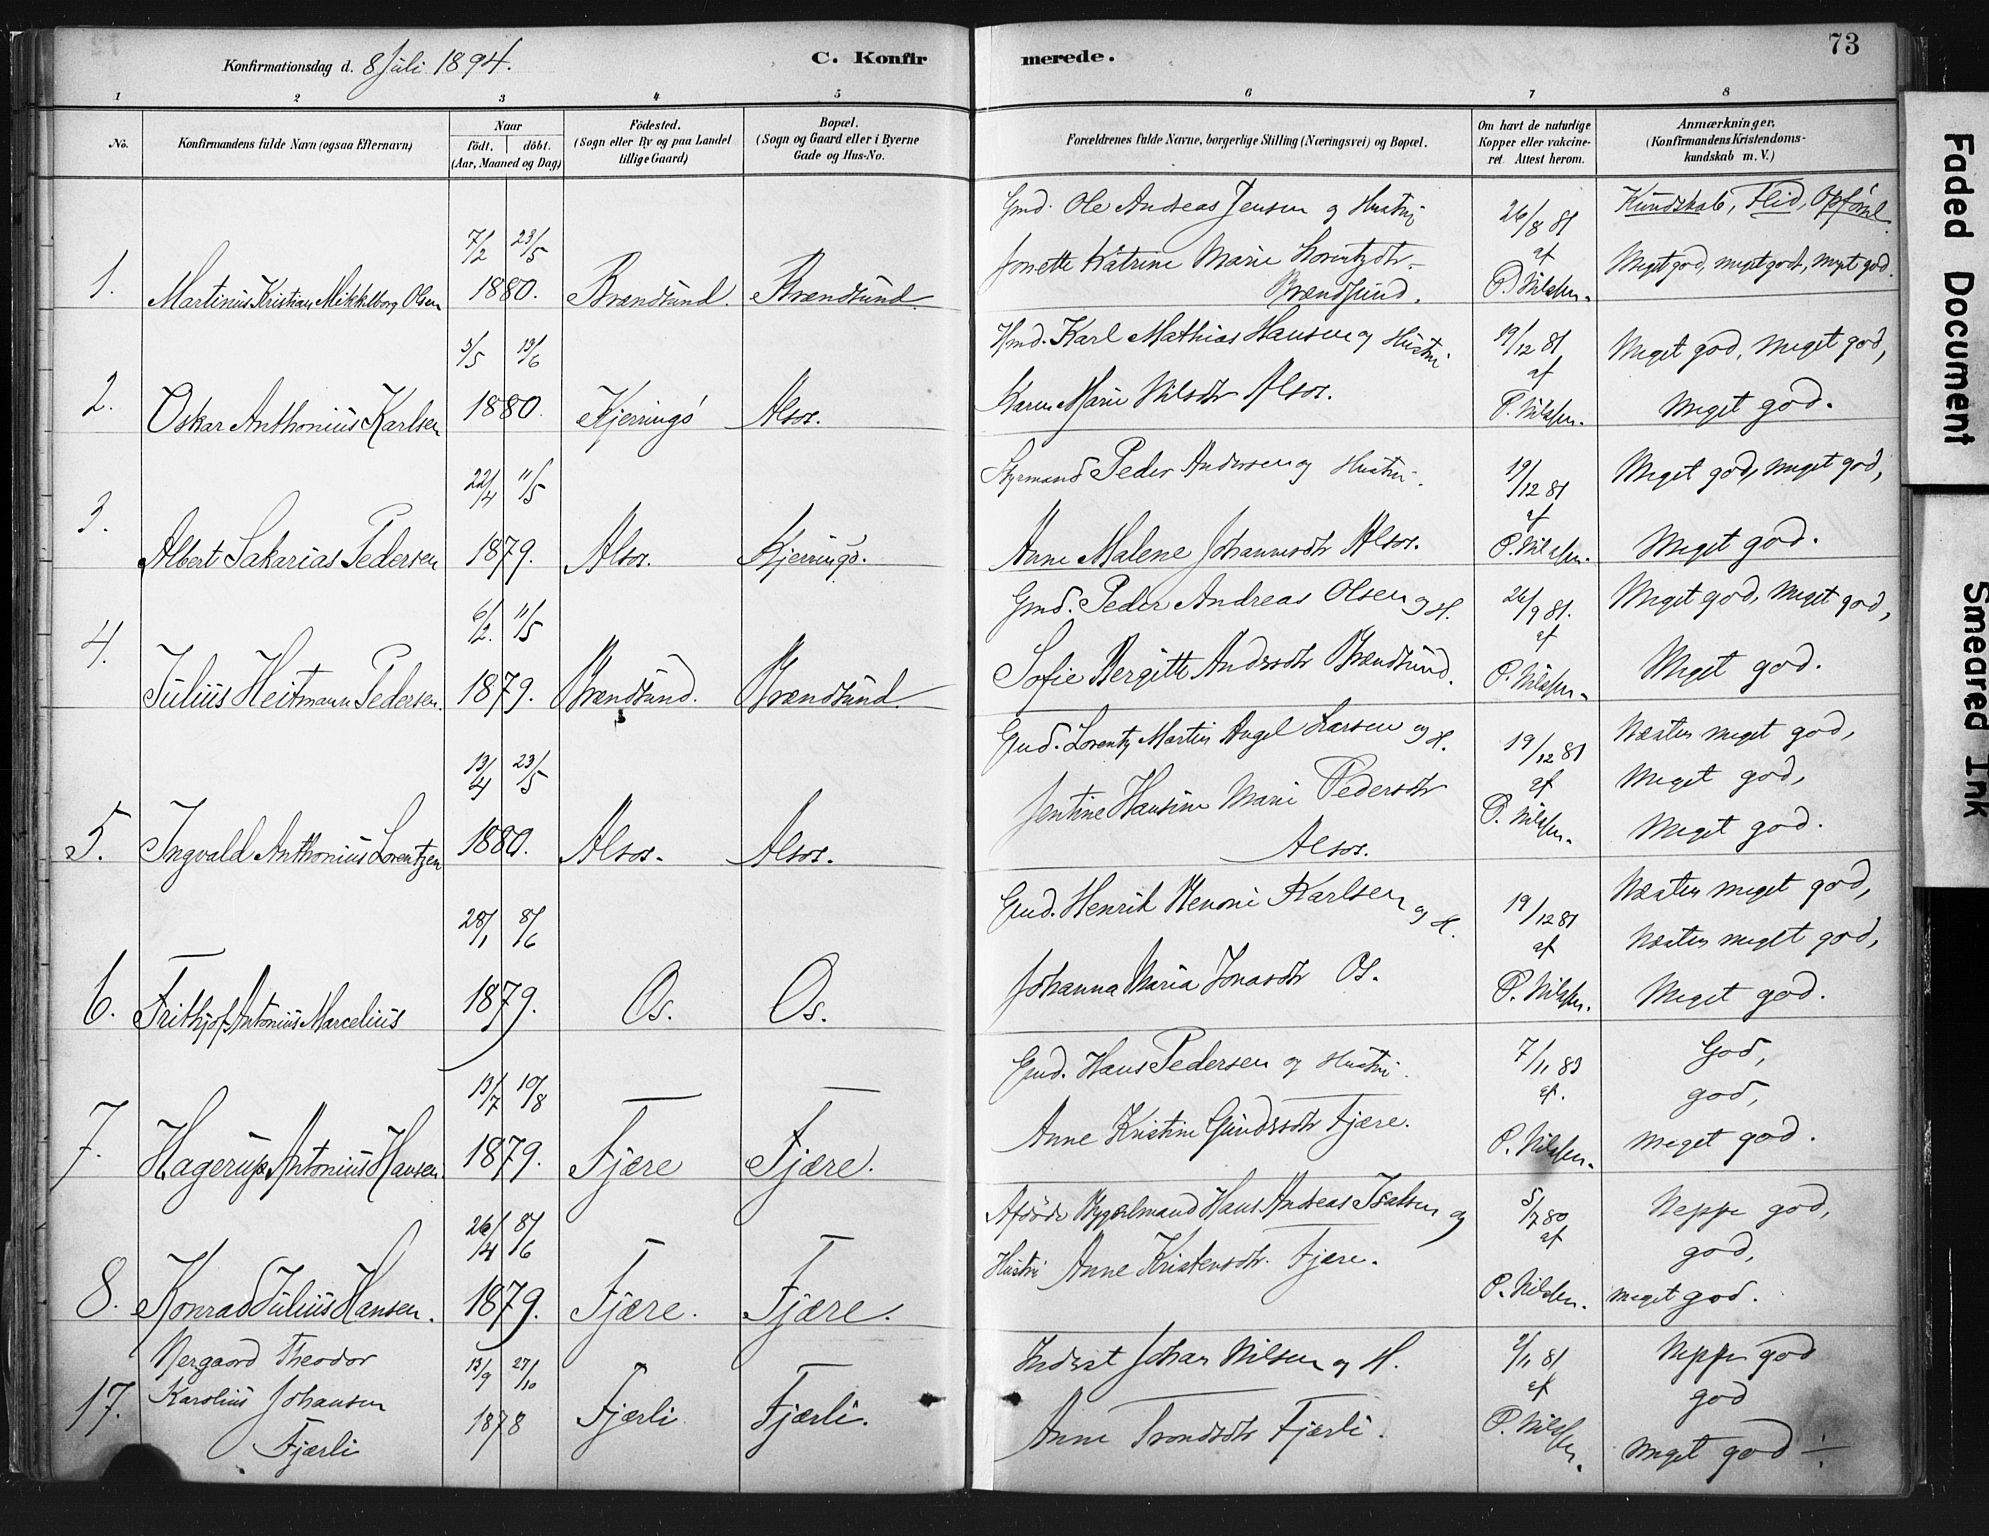 73
Konfirmationsdag d. 8 Juli 1894.
C. Konfirmerede.
1 2 3 4 5 6 7 8
No.
Konfirmandens fulde Navn (ogsaa Efternavn)
Naar
födt. döbt.
(Aar, Maaned og Dag)
Födested.
(Sogn eller By og paa Landet
tillige Gaard)
Bopæl.
(Sogn og Gaard eller i Byerne
Gade og Hus-No.
Forældrenes fulde Navne, borgerlige Stilling (Næringsvei) og Bopæl.
Om havt de naturlige
Kopper eller vakcine-
ret. Attest herom.
Anmærkninger.
(Konfirmandens Kristendoms-
kundskab m. V.)
Kundskab, Flid, Opförsel
1.
Martinus Kristian Mikkelborg Olsen
7/2 23/5
1880.
Brændsund.
Brændsund
Gmd. Ole Andreas Jensen og Hustru
Jonette Katrine Marie Lorentzdtr
Brændsund.
26/8 81
af
P. Nilssen.
Meget god, meget god, meget god.
2.
Oskar Anthonius Karlsen
5/5 13/6
1880.
Kjerringö
Alsos.
Hmd. Karl Mathias Hansen og Hustru
Karen Marie Nilsdtr Alsos.
19/12 81
af
P. Nilssen.
Meget god, meget god,
Meget god.
3.
Albert Sakarias Pedersen
22/4 11/5
1879.
Alsos.
Kjerringö.
Styrmand Peder Andersen og Hustru.
Anne Malene Johannesdtr Alsos.
19/12 81
af
P. Nilssen.
Meget god, meget god,
Meget god.
4.
Julius Heitmann Pedersen.
6/2. 11/5
1879.
Brændsund.
Brændsund
Gmd. Peder Andreas Olsen og H.
Sofie Bergitte Andersdtr Brændsund.
26/9 81.
af
P. Nilssen.
Meget god, meget god,
Meget god.
5.
Ingvald Anthonius Lorentzen
13/4 23/5
1880.
Alsos.
Alsos.
Gmd. Lorentz Martin Angel Larsen og H.
Jentine Hansine Marie Pedersdtr
Alsos.
19/12 81
af
P. Nilssen.
Næsten meget god,
Meget god,
Meget god.
6.
Frithjof Antonius Marcelius
28/1 8/6
1879.
Os.
Os.
Gmd. Henrik Benoni Karlsen og H.
Johanna Maria Jonasdtr Os.
19/12 81
af
P. Nilssen.
Næsten meget god,
Næsten meget god,
Meget god.
7.
Hagerup Antonius Hansen
13/7 10/8
1879.
Fjære
Fjære.
Gmd. Hans Pedersen og Hustru.
Anne Kristine Gundersdtr Fjære.
7/11 83
af.
P. Nilssen.
God,
god,
meget god.
8.
Konrad Julius Hansen.
26/4 8/6
1879.
Fjære.
Fjære.
Afdöde Bygselmand Hans Andreas Isaksen og
Hustru Anne Kristensdtr. Fjære.
5/7 80
af
P. Nilssen.
Neppe god,
god,
meget god.
17.
Nergaard Theodor
Karolius Johansen
Fjærli
13/9 27/10
1878
Fjærli
Fjærli.
Inderst Johan Nilsen og H.
Anne Trondsdtr Fjærli.
9/11 81
af
P. Nilssen.
Neppe god
god
meget god ÷
Faded Document
Smeared Ink